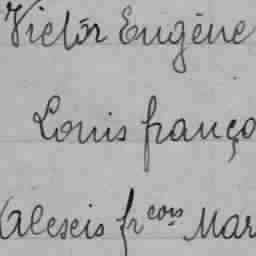 Victor Eugène
Louis franço
(Alexis frcois Mar